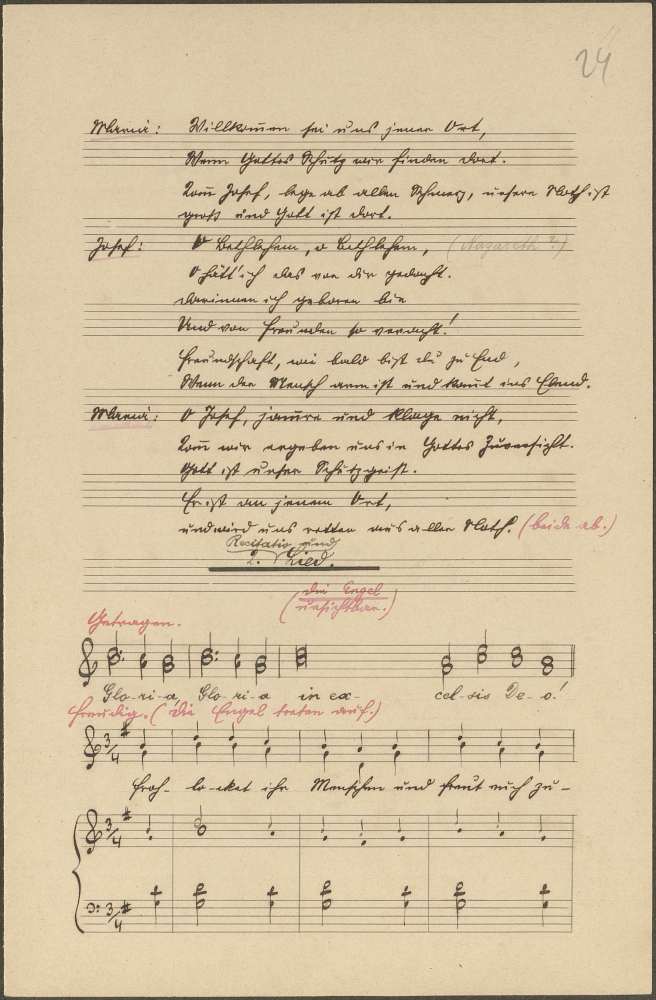 24
Maria: Willkommen sei uns jener Ort,
Wenn Gottes Schutz wir finden dort.
Komm Josef, lege ab allen Schmerz, unsere Noth ist
groß und Gott ist dort.
Josef: O Bethlehem, o Bethlehem, (Nazareth?)
O hätt' ich das von dir gedacht.
Darinnen ich geboren bin
Und von Freunden so veracht!
Freundschaft, wie bald bist du zu End,
Wenn der Mensch arm ist und kom̄t ins Elend.
Maria: O Josef, jam̄re und klage nicht,
Kom̄ wir ergeben uns in Gottes Zuversicht.
Gott ist unser Schutzgeist.
Er ist an jenem Ort,
und wird uns retten aus aller Noth. (beide ab.)
Recitativ und
2. Lied.
(die Engel
unsichtbar.)
Getragen.
Glo-ri-a, Glo-ri-a in ex- cel-sis De-o!
Freudig. (die Engel treten auf.)
Froh-lo-cket ihr Menschen und freut euch zu-